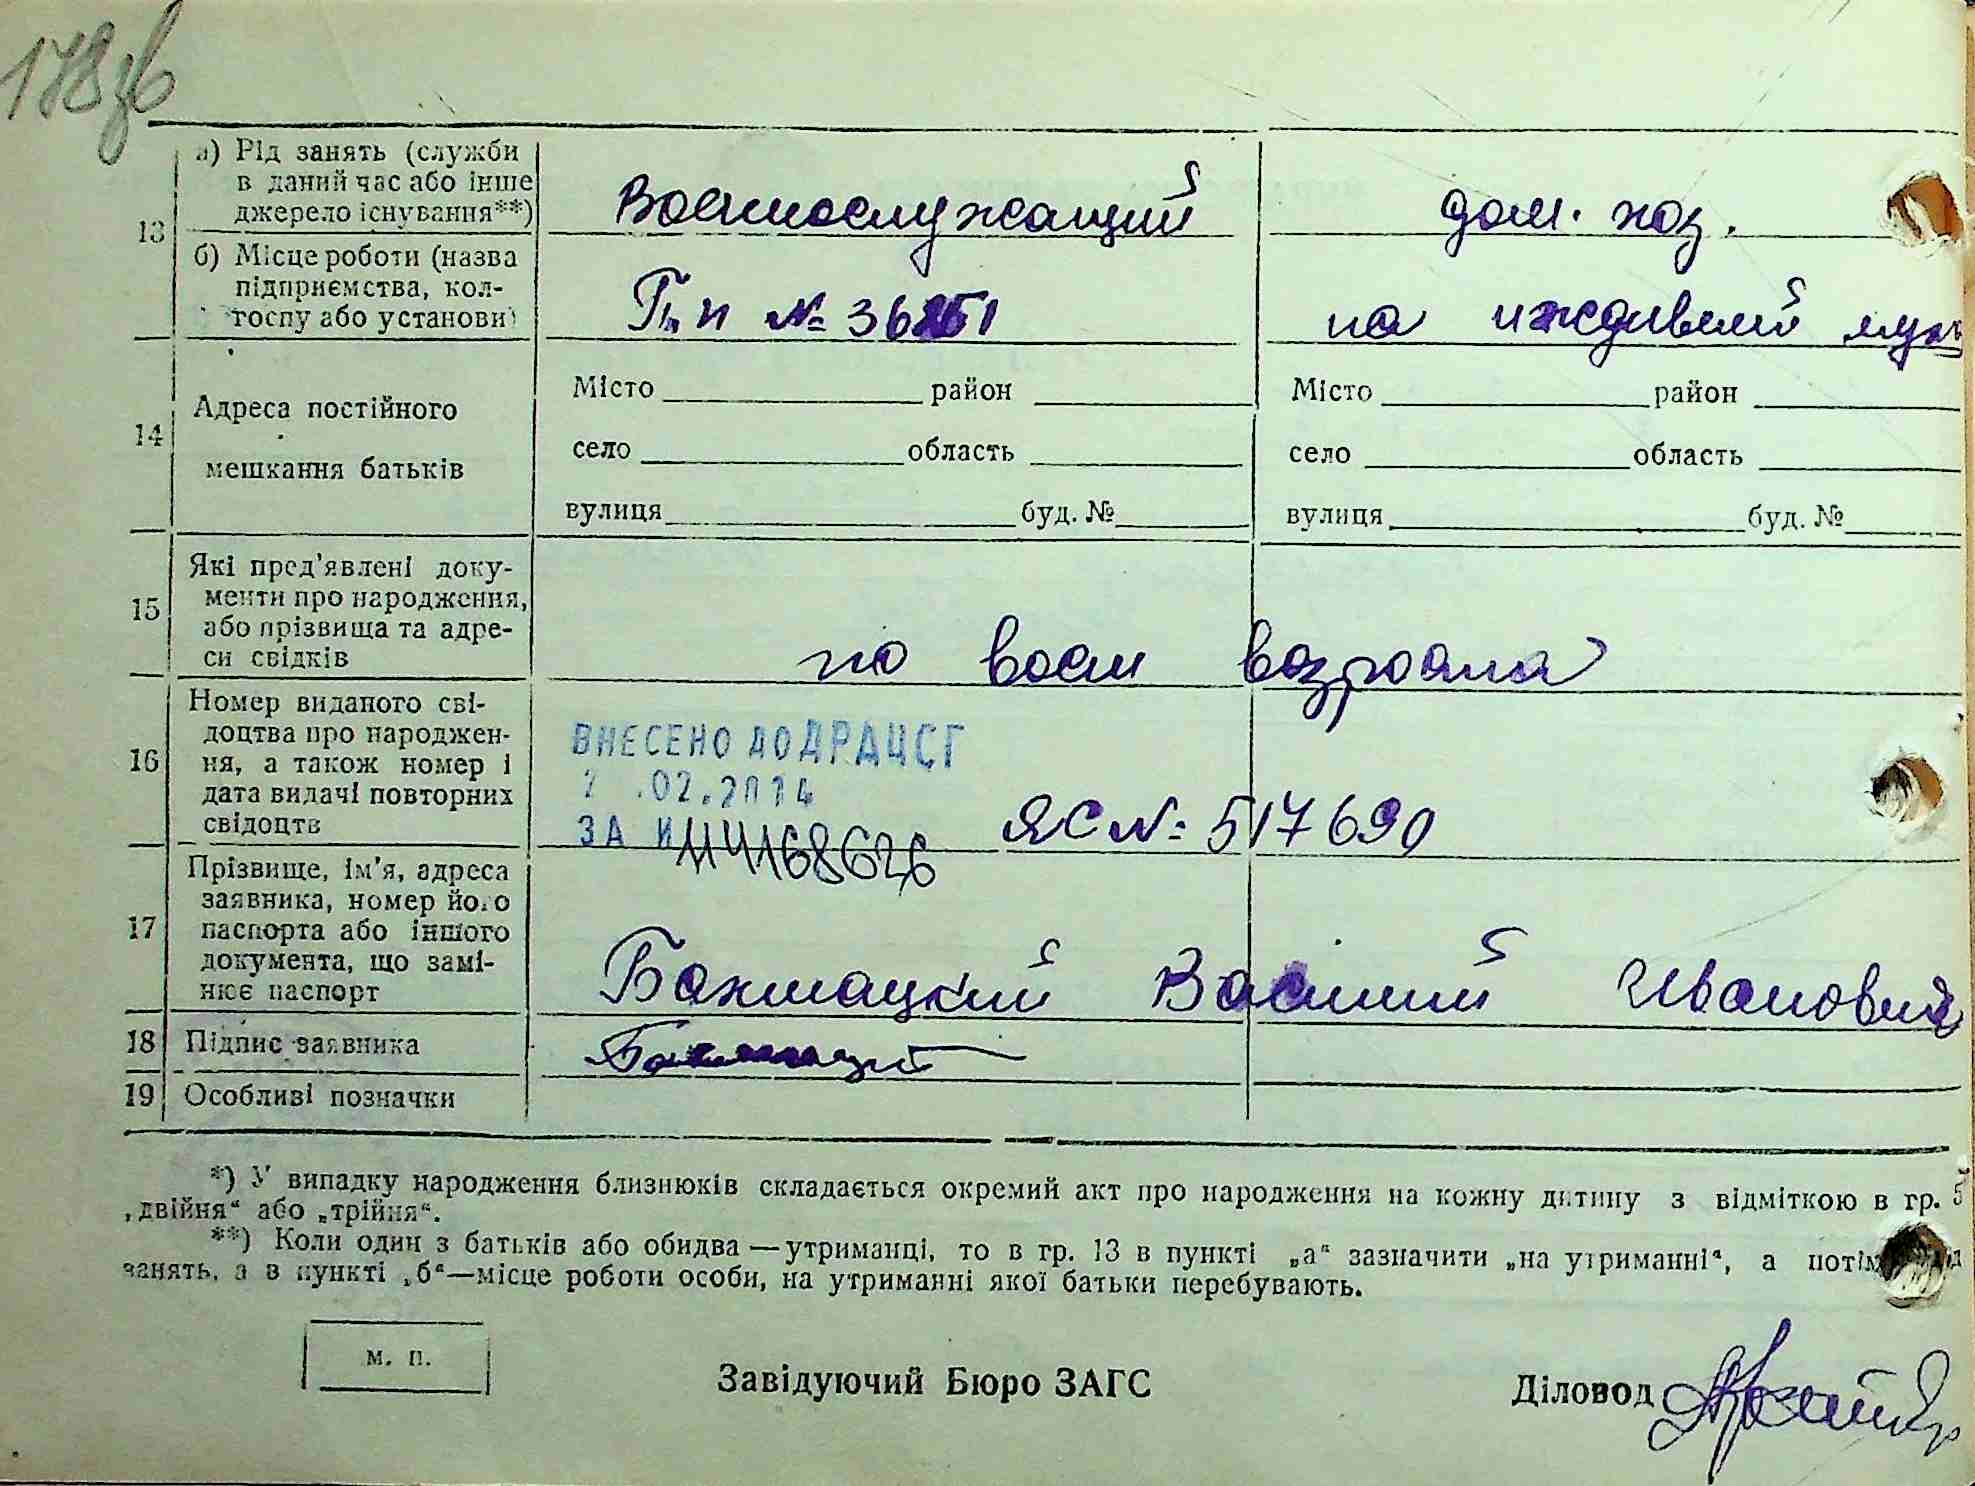 178 зв
13
а) Рід занять (служби
в даний час або інше
джерело існування**)
Военнослужащий
дом. хоз.
б) Місце роботи (назва
підприємства, кол-
госпу або установи)
№ 36
на иждивений муж
14
Адреса постійного
мешкання батьків
Місто район
село область
вулиця буд. №
Місто район
село область
вулиця буд. №
15
Які пред'явлені доку-
менти про народження,
або прізвища та адре-
си свідків
по воем возроста
16
Номер виданого сві-
доцтва про народжен-
ня, а також номер і
дата видачі повторних
свідоцтв
ВНЕСЕНО ДО ДРАЦСГ
.02.2014
ЗА №114168626
ЯС № 517690
17
Прізвище, ім'я, адреса
заявника, номер його
паспорта або іншого
документа, що замі-
нює паспорт
Бахмацкий Василий Иванович
18
Підпис заявника
19
Особливі позначки
*) У випадку народження близнюків складається окремий акт про народження на кожну дитину з відміткою в гр. 5
„двійня“ або „трійня“.
**) Коли один з батьків або обидва — утриманці, то в гр. 13 в пункті „а“ зазначити „на утриманні“, а потім
занять, а в пункті „б“—місце роботи особи, на утриманні якої батьки перебувають.
м. п.
Завідуючий Бюро ЗАГС
Діловод